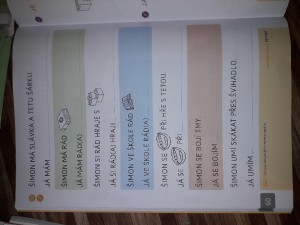 ŠIMON MÁ SLÁVKA A TETU ŠÁRKU.
JÁ MÁM
ŠIMON MÁ RÁD
JÁ MÁM RÁD(A)
ŠIMON SI RÁD HRAJE S
JÁ SI RÁD(A) HRAJI
ŠIMON VE ŠKOLE RÁD
JÁ VE ŠKOLE RÁD(A)
ŠIMON SE PŘI HŘE S TETOU.
JÁ SE PŘI
ŠIMON SE BOJÍ TMY.
JÁ SE BOJÍM
ŠIMON UMÍ SKÁKAT PŘES ŠVIHADLO.
JÁ UMÍM